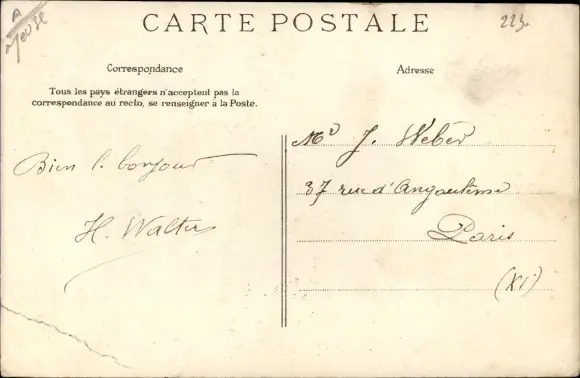 CARTE POSTALE
223
Correspondance
Tous les pays étrangers n'acceptent pas la
correspondance au recto, se renseigner à la Poste.
Bien l. bonjour
H. Walter
Adresse
Mr J. Wéber
37 rue d'Angoulême
Paris
(XI)